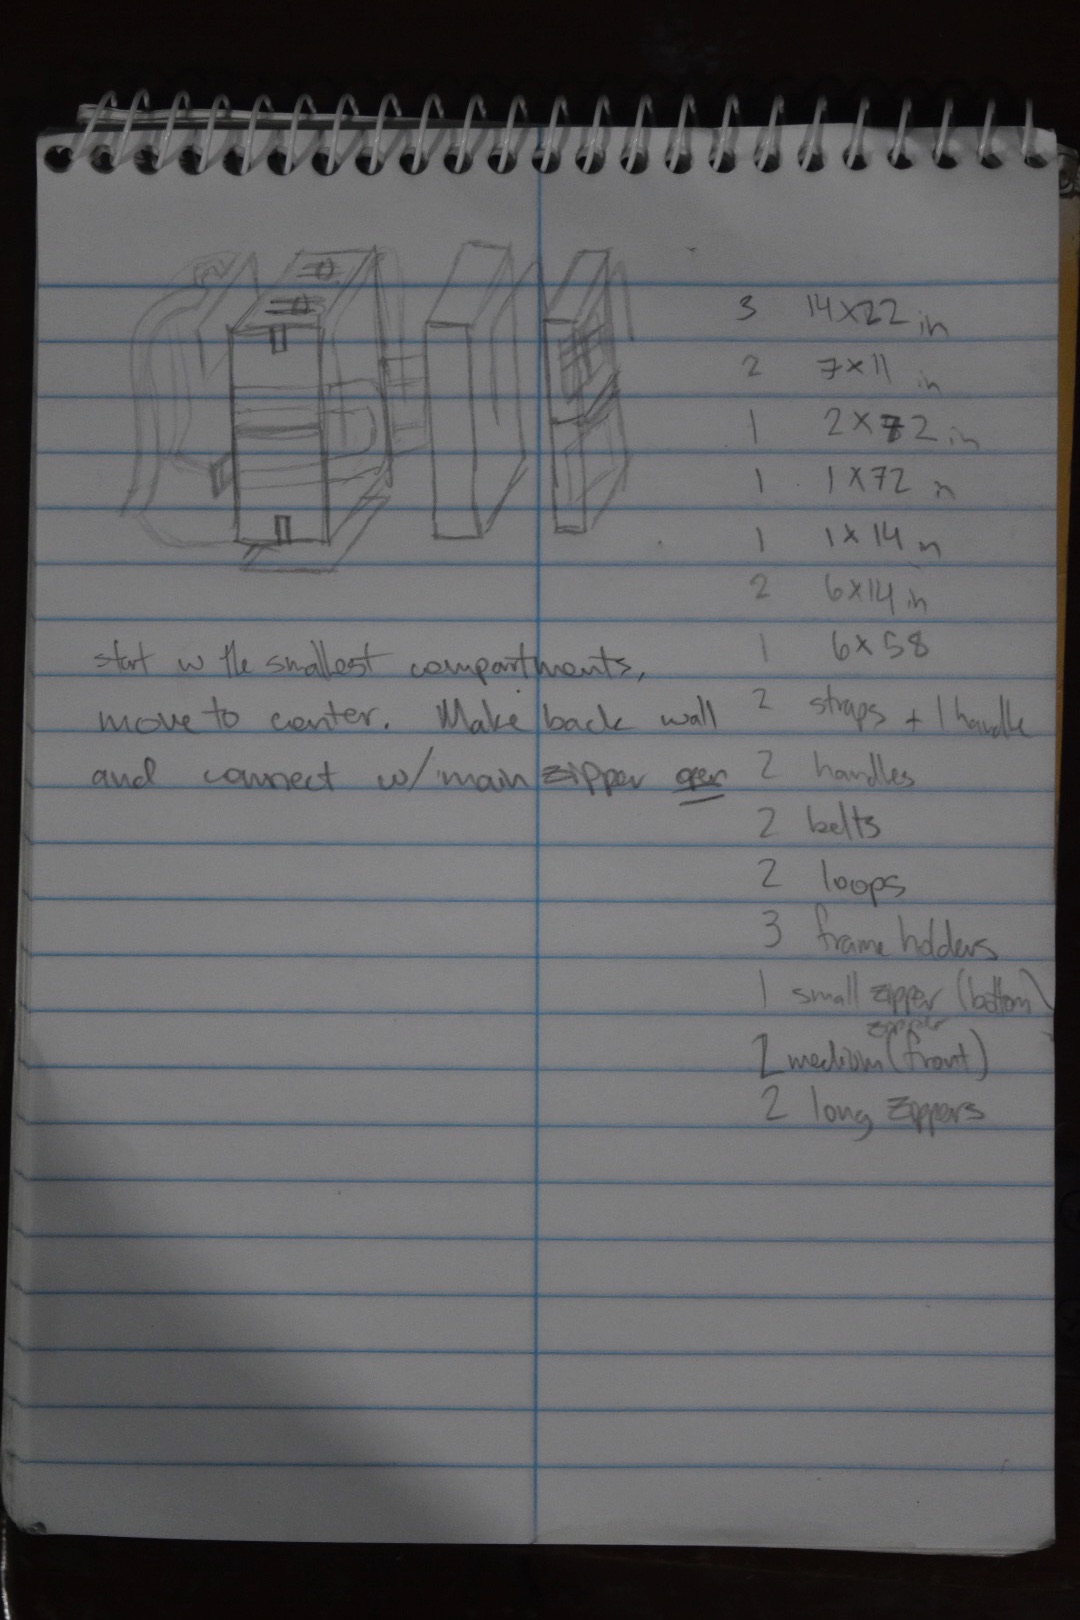 start w the smallest compartments,
move to center. Make back wall
and connect w/ main zipper
3 14x22 in
2 7x11 in
1 2x72 in
1 1x72 in
1 1x14 in
2 6x14 in
1 6x58
2 straps + 1 handle
2 handles
2 belts
2 loops
3 frame holders
1 small zipper (bottom)
zipper
2 medium (front)
2 long zippers